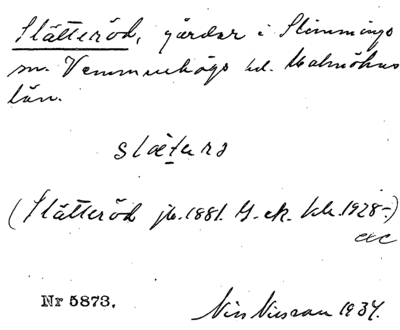 Slätteröd, gårdar i Slimminge
sn. Vemmenhögs hd. Malmöhus
län.
slætərö
(Slätteröd jb. 1881. G. ek. kbl. 1928-)
etc
Nr 5873. Nils Nilsson 1934.